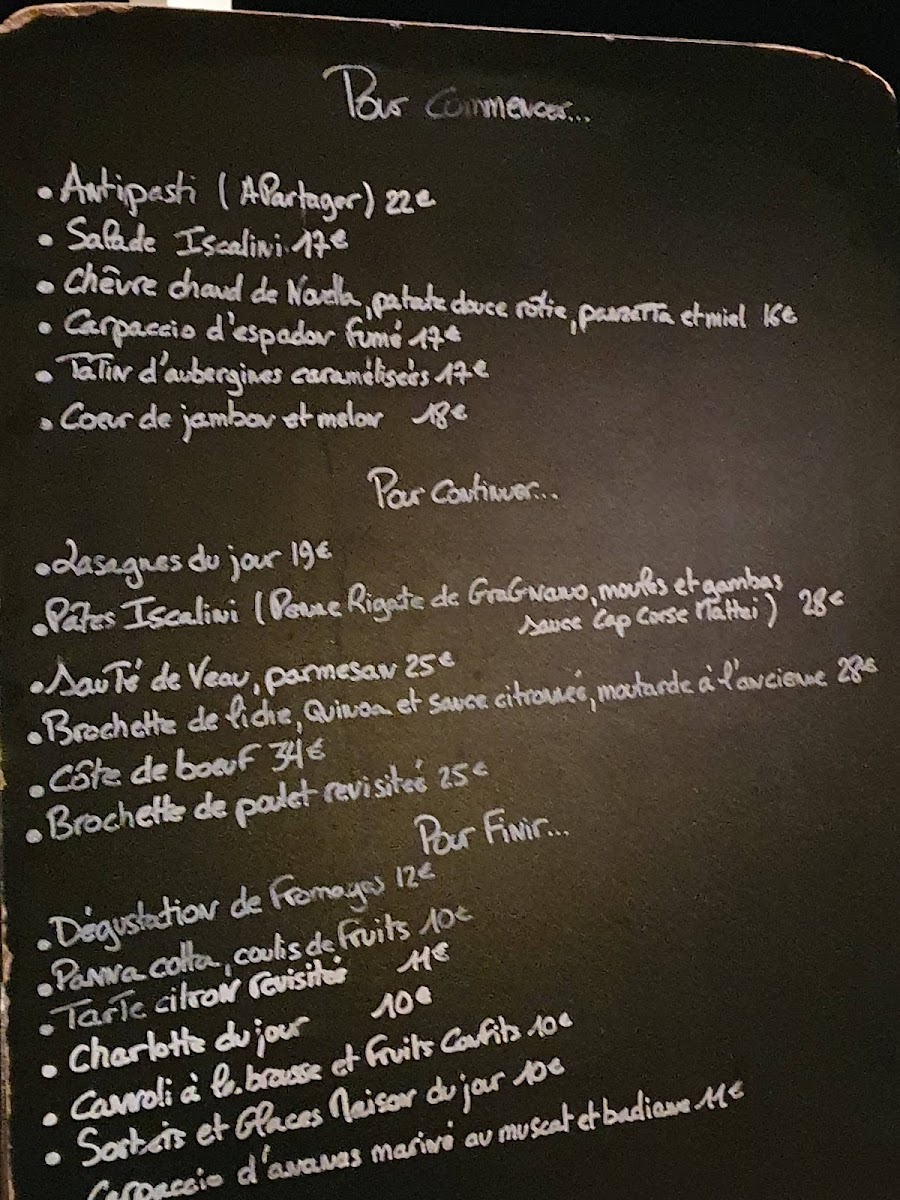 Pour commencer...
• Antipasti (A Partager) 22€
• Salade Iscalini 17€
• Chêvre chaud de Novella, patate douce rôtie, panzetta et miel 16€
• Carpaccio d'espadon fumé 17€
• Tatin d'aubergines caramélisées 17€
• Coeur de jambon et melon 18€
Pour Continuer...
• Lasagnes du jour 19€
• Pâtes Iscalini (Penne Rigate de Gragnano, moules et gambas
sauce Cap Corse Mattei) 28€
• Sauté de Veau, parmesan 25€
• Brochette de liche, Quinoa et sauce citronnée, moutarde à l'ancienne 28€
• Côte de boeuf 34€
• Brochette de poulet revisitée 25€
Pour Finir...
• Dégustation de Fromages 12€
• Panna cotta, coulis de Fruits 10€
• Tarte citron revisitée 11€
• Charlotte du jour 10€
• Cannoli à la brousse et Fruits Confits 10€
• Sorbets et Glaces Maison du jour 10€
Carpaccio d'ananas mariné au muscat et badiane 11€